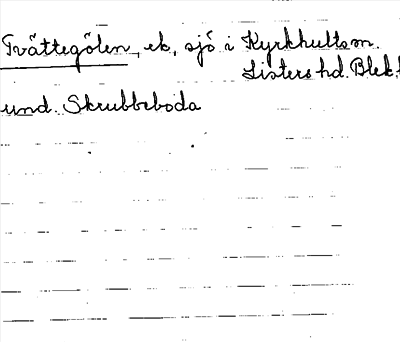 Tvättegölen, ek, sjö i Kyrkhultsm.
Listers hd. Blek.
und. Skrubbeboda